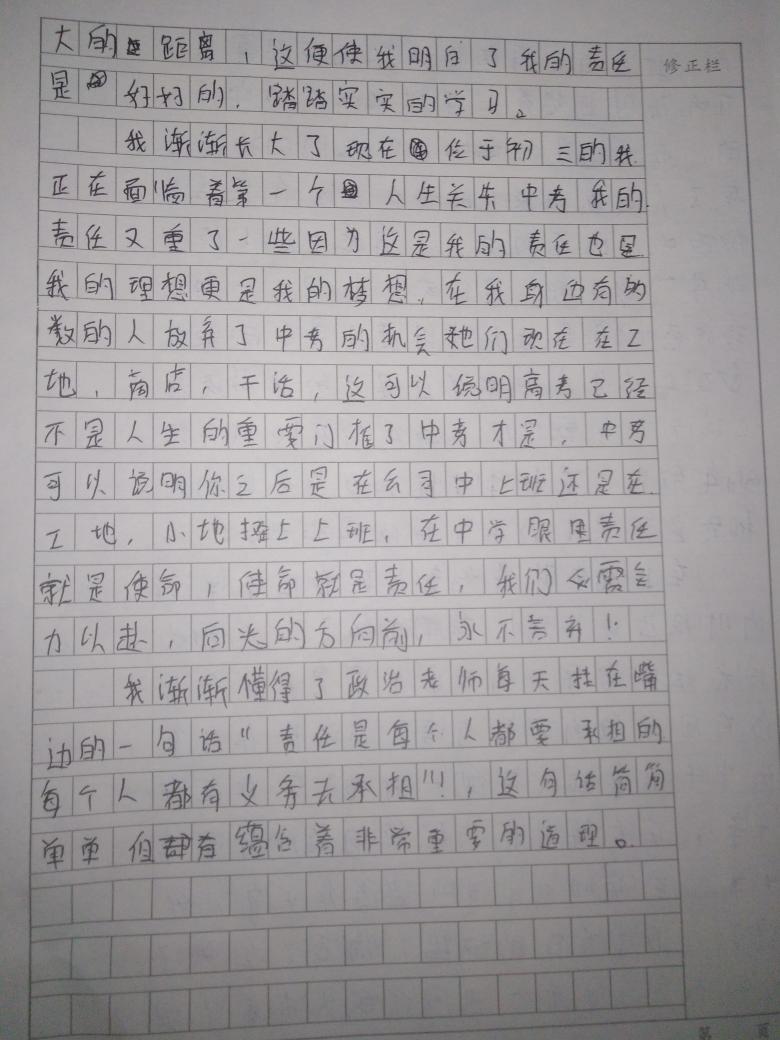 大的距离，这便使我明白了我的责任
修正栏
是好好的，踏踏实实的学习。
我渐渐长大了现在位于初三的我
正在面临着第一个人生关头中考我的
责任又重了一些因为这是我的责任也是
我的理想更是我的梦想，在我身边有的
数的人放弃了中考的机会她们现在在工
地，商店，干活，这可以说明高考已经
不是人生的重要门槛了中考才是，中考
可以说明你之后是在公司中上班还是在
工地，小地摊上上班，在中学眼里责任
就是使命，使命就是责任，我们必需全
力以赴，向光的方向前，永不言弃！
我渐渐懂得了政治老师每天挂在嘴
边的一句话"责任是每个人都要承担的
每个人都有义务去承担"！，这句话简简
单单但却有蕴含着非常重要的道理。
第 页